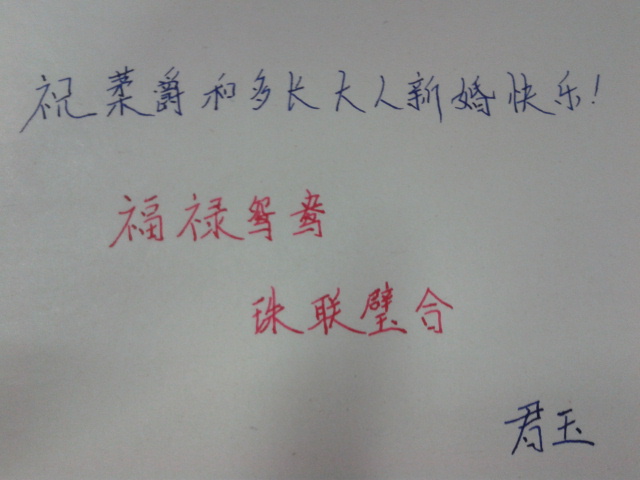 祝菜爵和多长大人新婚快乐!
福禄鸳鸯
珠联璧合
君玉